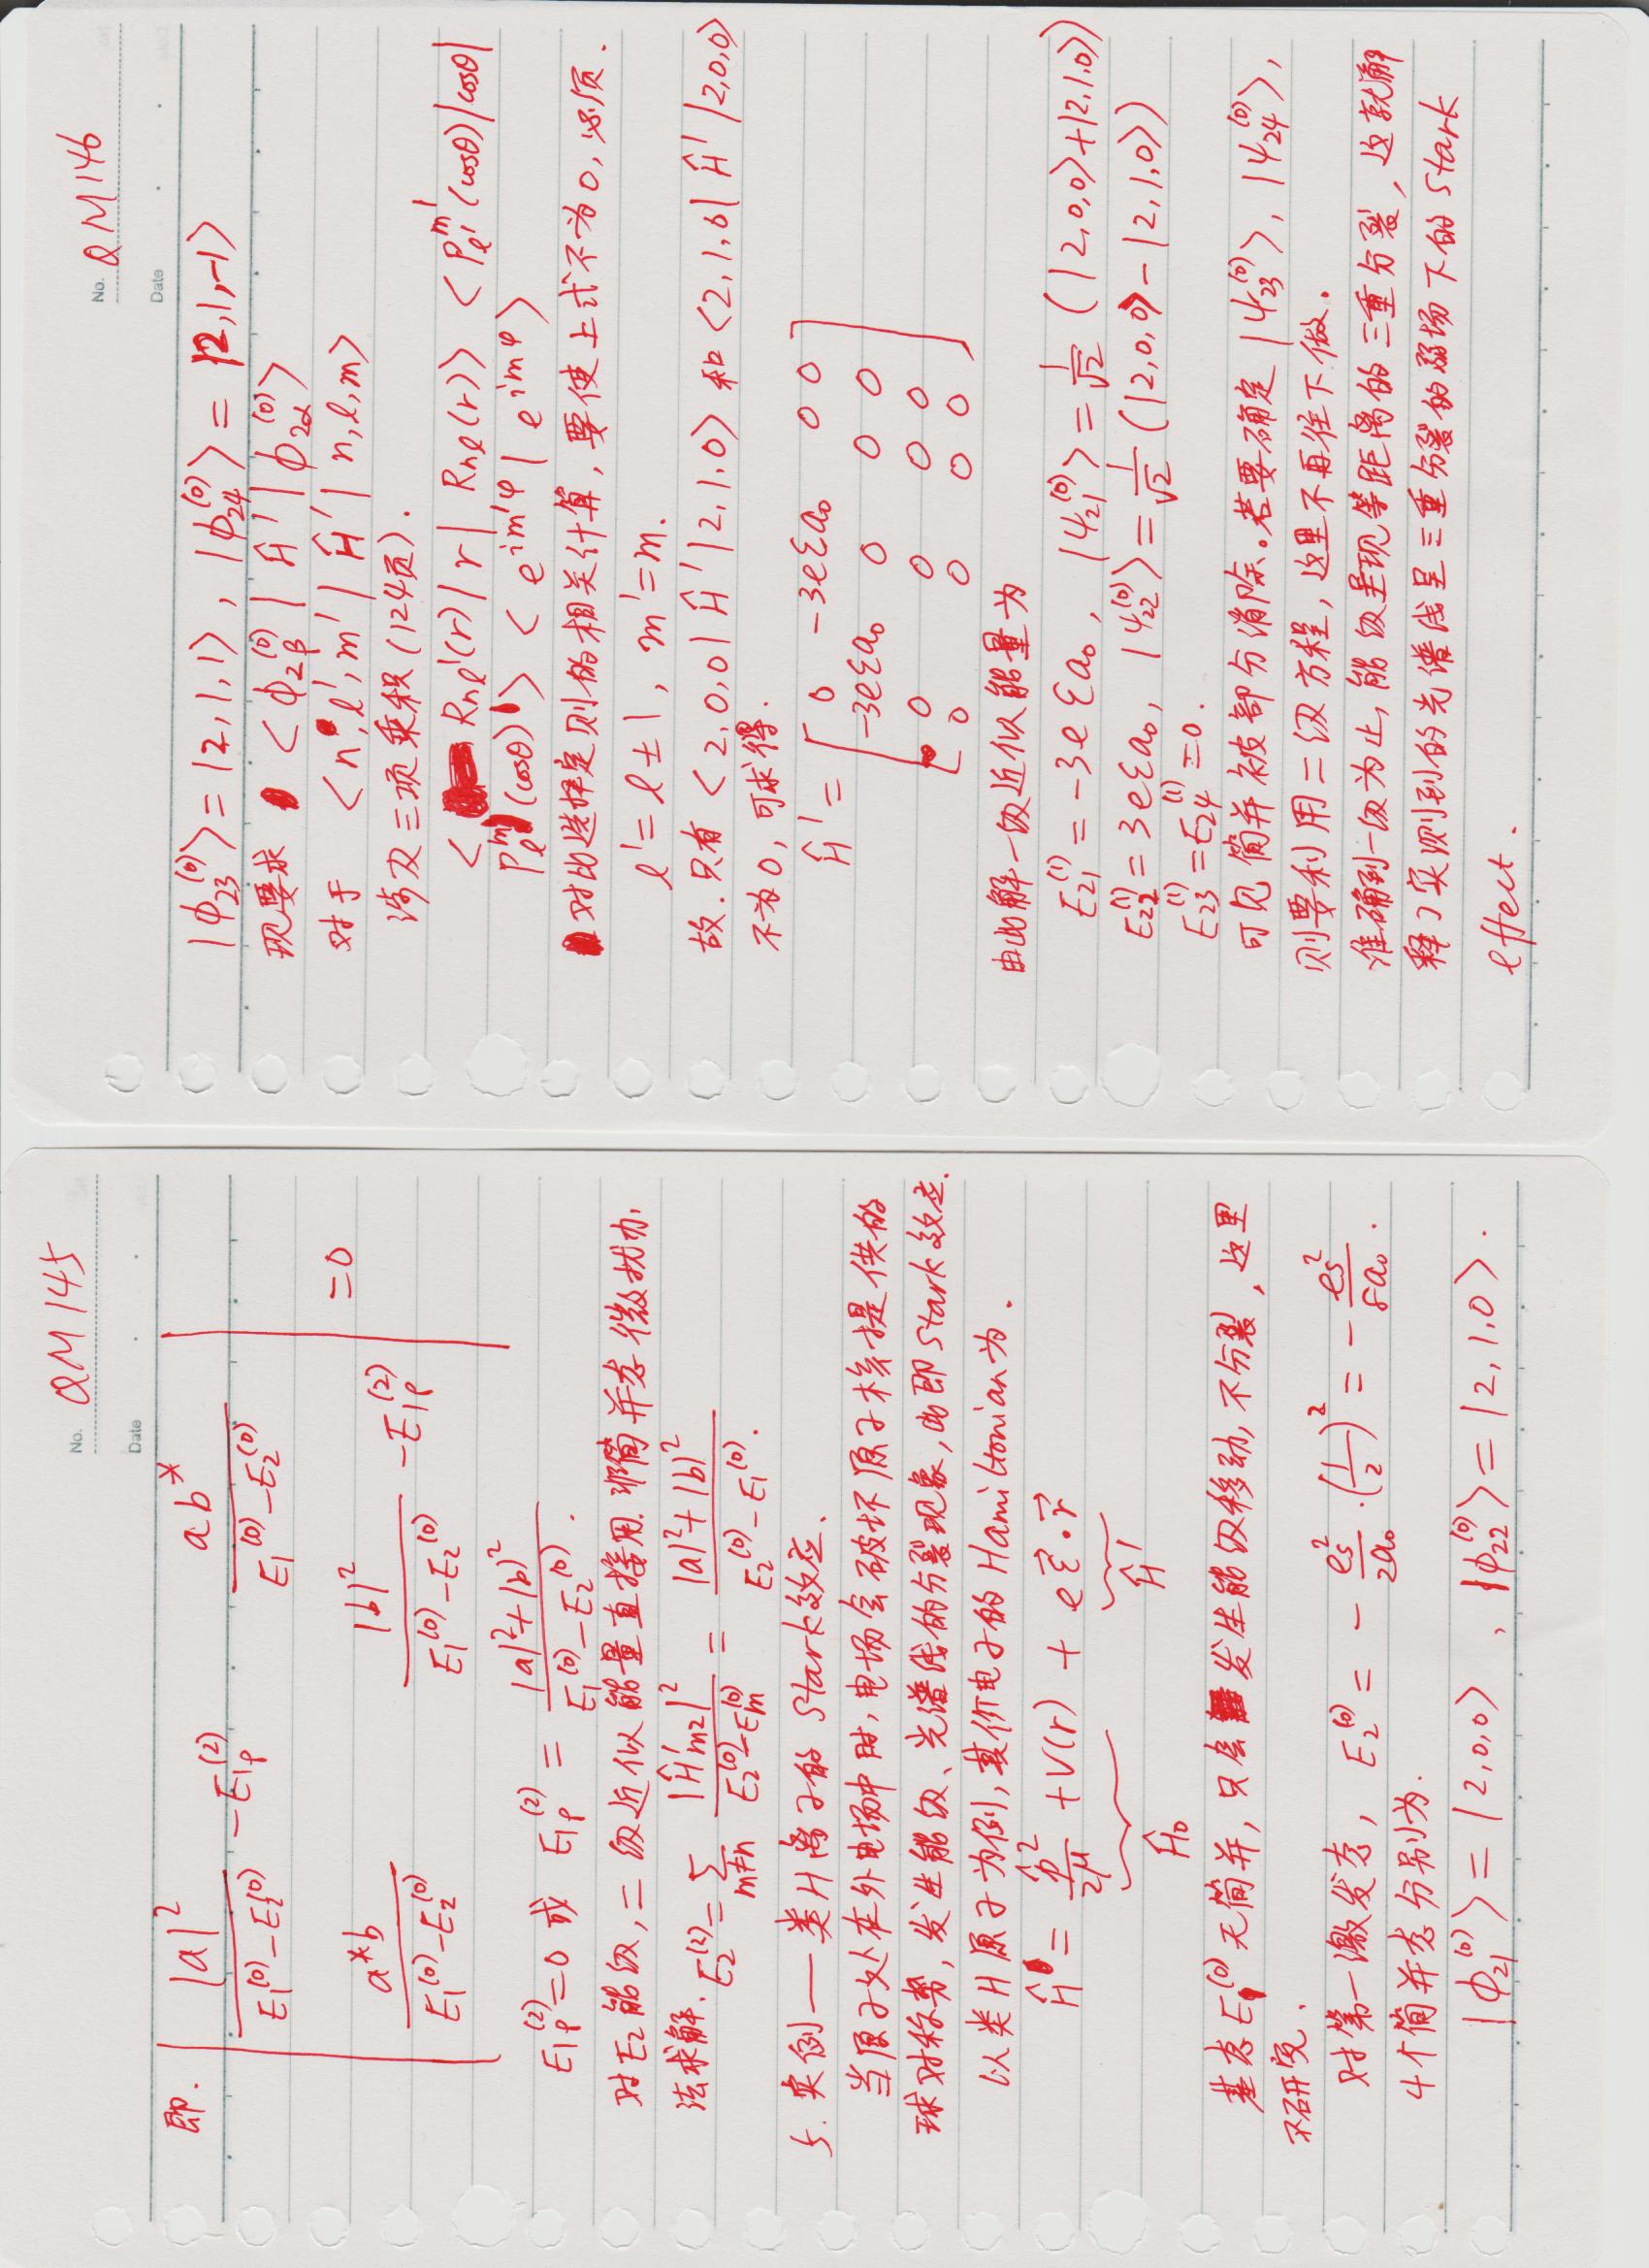 No. QM 145
Date
即. | |a|²/(E₁⁽⁰⁾-E₂⁽⁰⁾) - E₁ρ⁽²⁾   ab*/(E₁⁽⁰⁾-E₂⁽⁰⁾) |
| a*b/(E₁⁽⁰⁾-E₂⁽⁰⁾)   |b|²/(E₁⁽⁰⁾-E₂⁽⁰⁾) - E₁ρ⁽²⁾ | =0
E₁ρ⁽²⁾=0 或 E₁ρ⁽²⁾ = (|a|²+|b|²)/(E₁⁽⁰⁾-E₂⁽⁰⁾).
对E₂能级,二级近似能量直接用非简并态微扰办
法求解. E₂⁽²⁾= Σ_{m≠n} |Ĥ'm2|²/(E₂⁽⁰⁾-Em⁽⁰⁾) = (|a|²+|b|²)/(E₂⁽⁰⁾-E₁⁽⁰⁾).
5. 实例——类H离子的Stark效应.
当原子处在外电场中时,电场会破坏原子核提供的
球对称势,发生能级、光谱线的分裂现象,此即Stark效应.
以类H原子为例,其价电子的Hamiltonian为.
Ĥ = p̂²/2μ + V(r) + e ε⃗·r⃗
Ĥ₀   Ĥ'
基态E₁⁽⁰⁾无简并,只会发生能级移动,不分裂,这里
不研究.
对第一激发态, E₂⁽⁰⁾ = - es²/2a₀ · (1/2)² = - es²/8a₀.
4个简并态分别为.
|ϕ₂₁⁽⁰⁾> = |2,0,0> , |ϕ₂₂⁽⁰⁾> = |2,1,0>.
No. QM 146
Date
|ϕ₂₃⁽⁰⁾> = |2,1,1> , |ϕ₂₄⁽⁰⁾> = |2,1,-1>
现要求 <ϕ₂β⁽⁰⁾ | Ĥ' | ϕ₂α⁽⁰⁾>
对于 <n,l',m' | Ĥ' | n,l,m>
涉及三项乘积(124页).
< Rnl'(r) | r | Rnl(r)> <Pl'^m'(cosθ)|cosθ|
Pl^m(cosθ)> <e^{im'φ} | e^{imφ}>
对比选择定则的相关计算,要使上式不为0,必须.
l'=l±1, m'=m.
故.只有<2,0,0| Ĥ' |2,1,0> 和 <2,1,0| Ĥ' |2,0,0>
不为0,可求得.
Ĥ' = [ 0 -3eεa₀ 0 0
-3eεa₀ 0 0 0
0 0 0 0
0 0 0 0 ]
由此解一级近似能量为
E₂₁⁽¹⁾ = -3eεa₀, |ψ₂₁⁽⁰⁾> = 1/√2 (|2,0,0>+|2,1,0>)
E₂₂⁽¹⁾ = 3eεa₀, |ψ₂₂⁽⁰⁾> = 1/√2 (|2,0,0>-|2,1,0>)
E₂₃⁽¹⁾=E₂₄⁽¹⁾=0.
可见简并被部分消除。若要确定|ψ₂₃⁽⁰⁾>, |ψ₂₄⁽⁰⁾>,
则要利用二级方程,这里不再往下做.
准确到一级为止,能级呈现等距离的三重分裂,这就解
释了实测到的光谱线呈三重分裂的弱场下的Stark
effect.